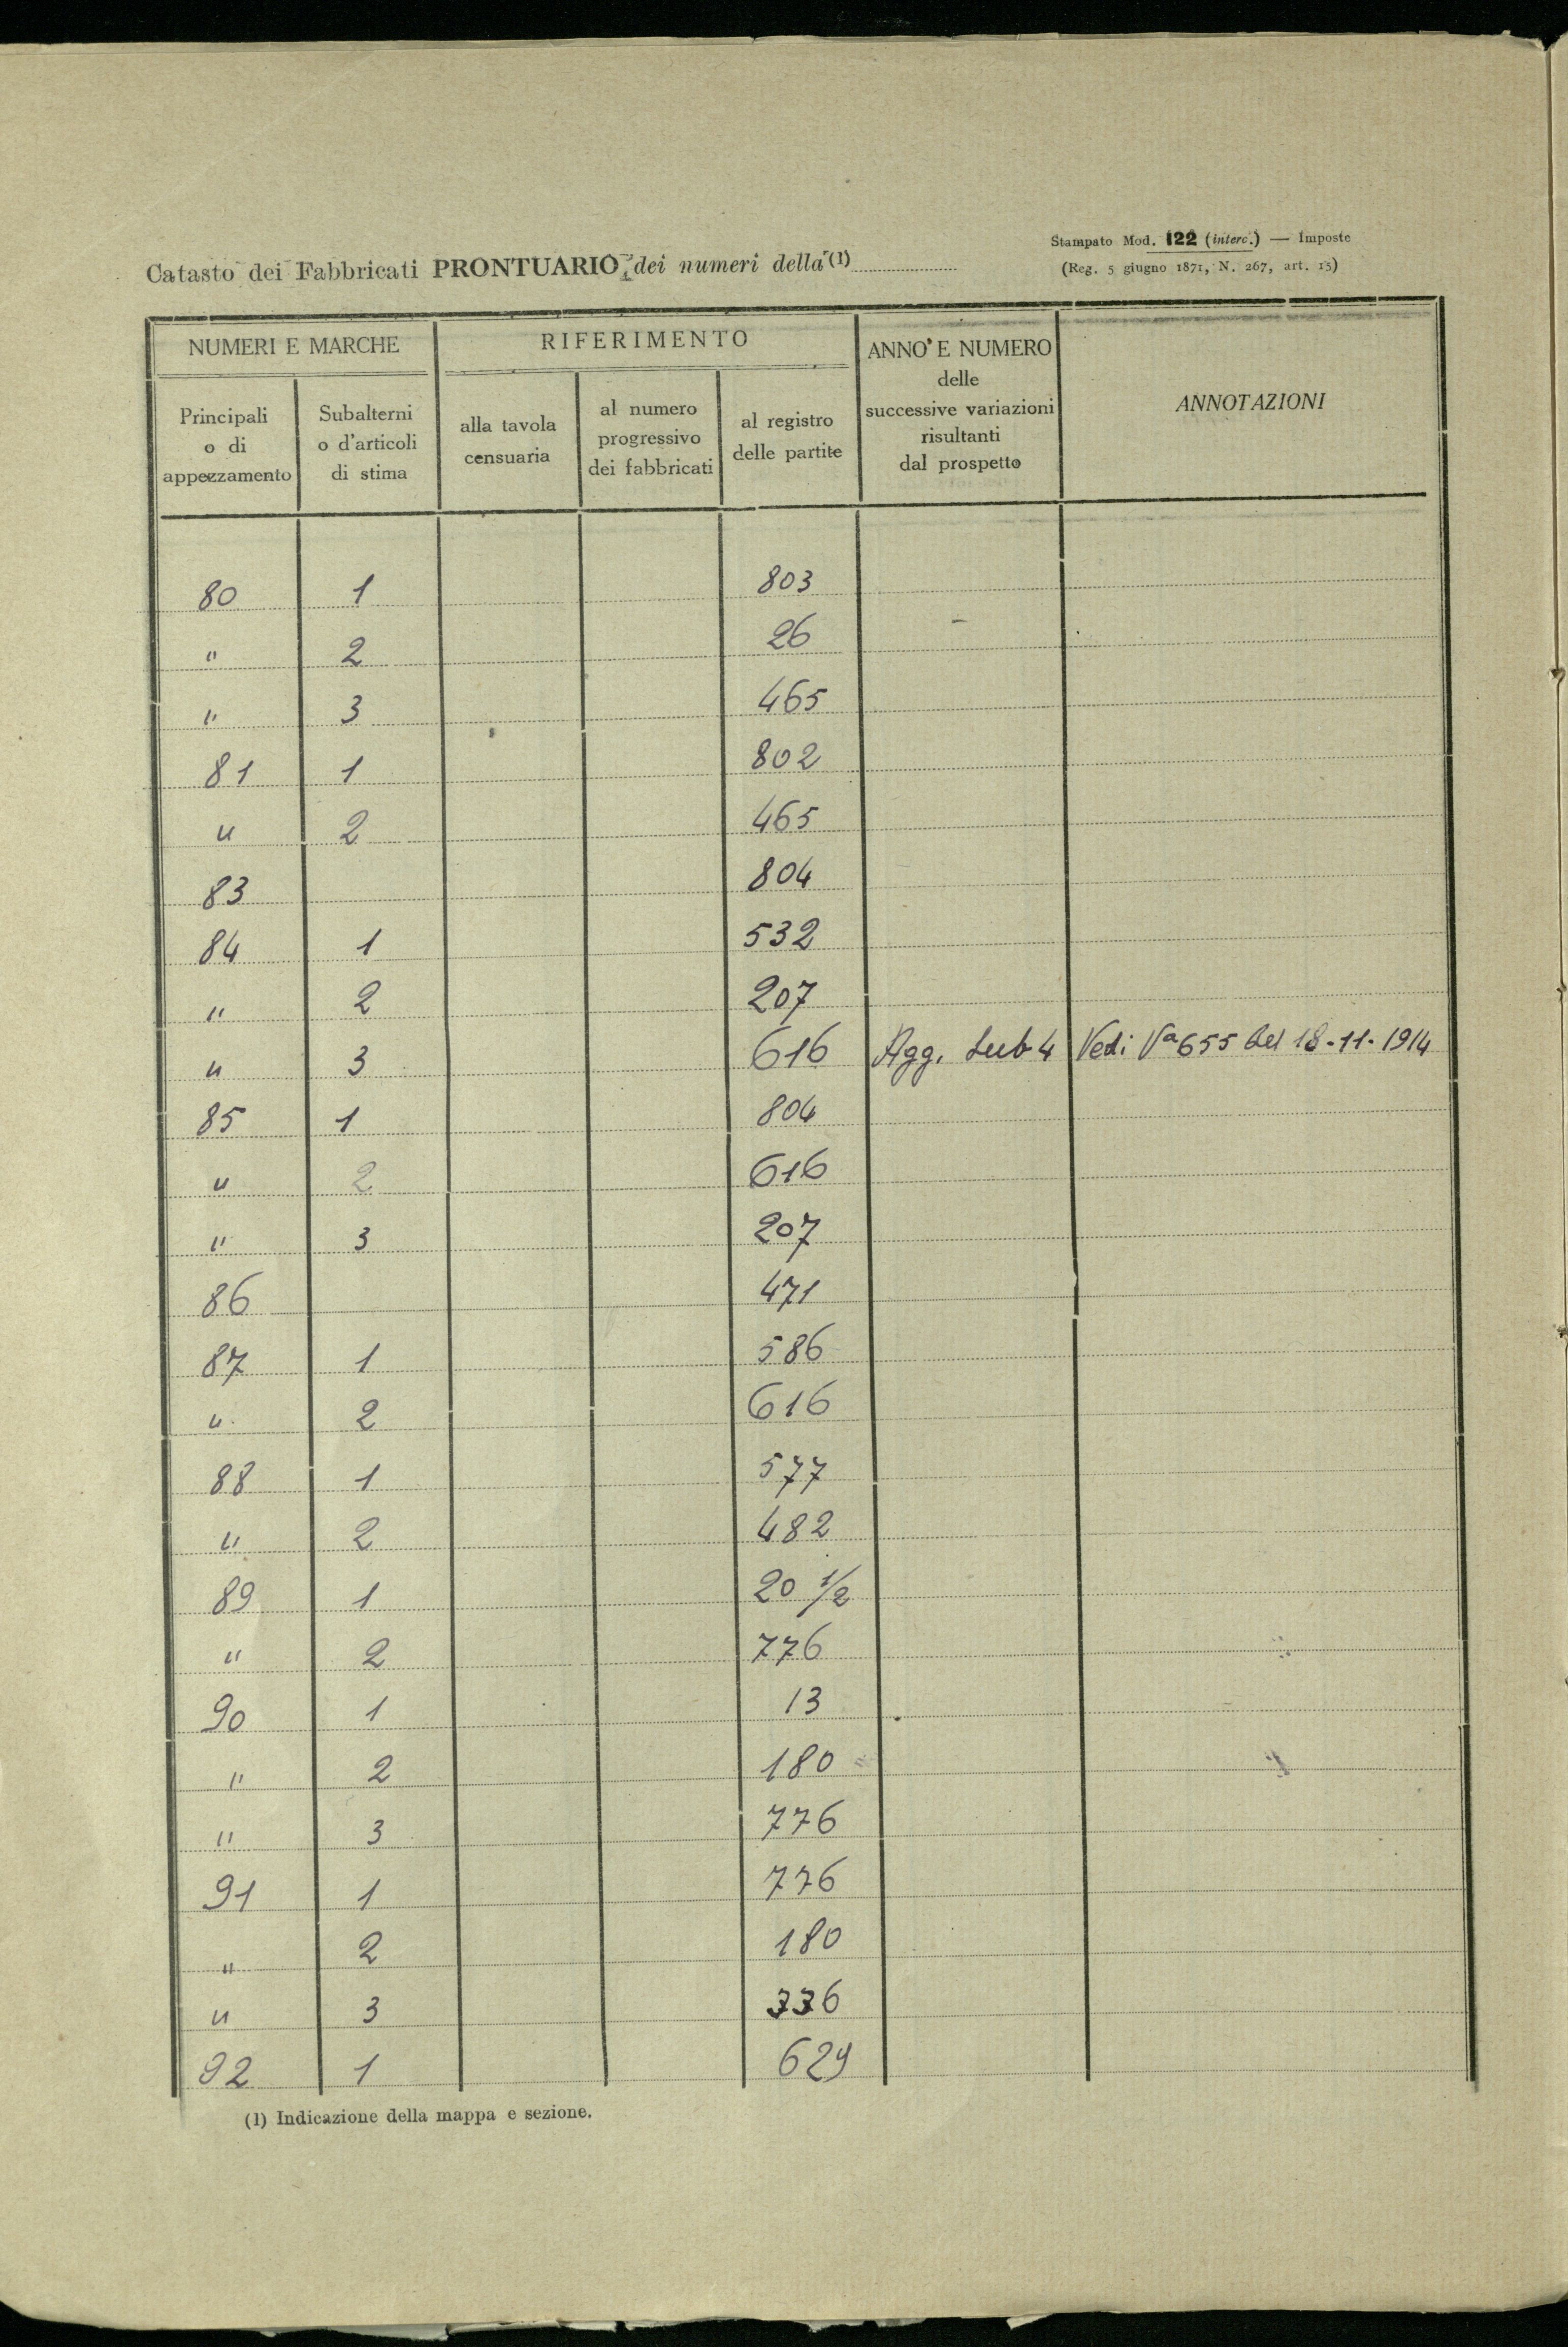 Stampato Mod. 122 (interc.) — Imposte
Catasto dei Fabbricati PRONTUARIO dei numeri della (1)
(Reg. 5 giugno 1871, N. 267, art. 15)
NUMERI E MARCHE
RIFERIMENTO
ANNO E NUMERO
delle
successive variazioni
risultanti
dal prospetto
ANNOTAZIONI
Principali
o di
appezzamento
Subalterni
o d'articoli
di stima
alla tavola
censuaria
al numero
progressivo
dei fabbricati
al registro
delle partite
80 1 803
" 2 26
" 3 465
81 1 802
" 2 465
83 804
84 1 532
" 2 207
" 3 616 Agg. Sub 4 Vedi Va 655 del 18-11-1914
85 1 804
" 2 616
" 3 207
86 471
87 1 586
" 2 616
88 1 577
" 2 482
89 1 20 1/2
" 2 776
90 1 13
" 2 180
" 3 776
91 1 776
" 2 180
" 3 336
92 1 629
(1) Indicazione della mappa e sezione.